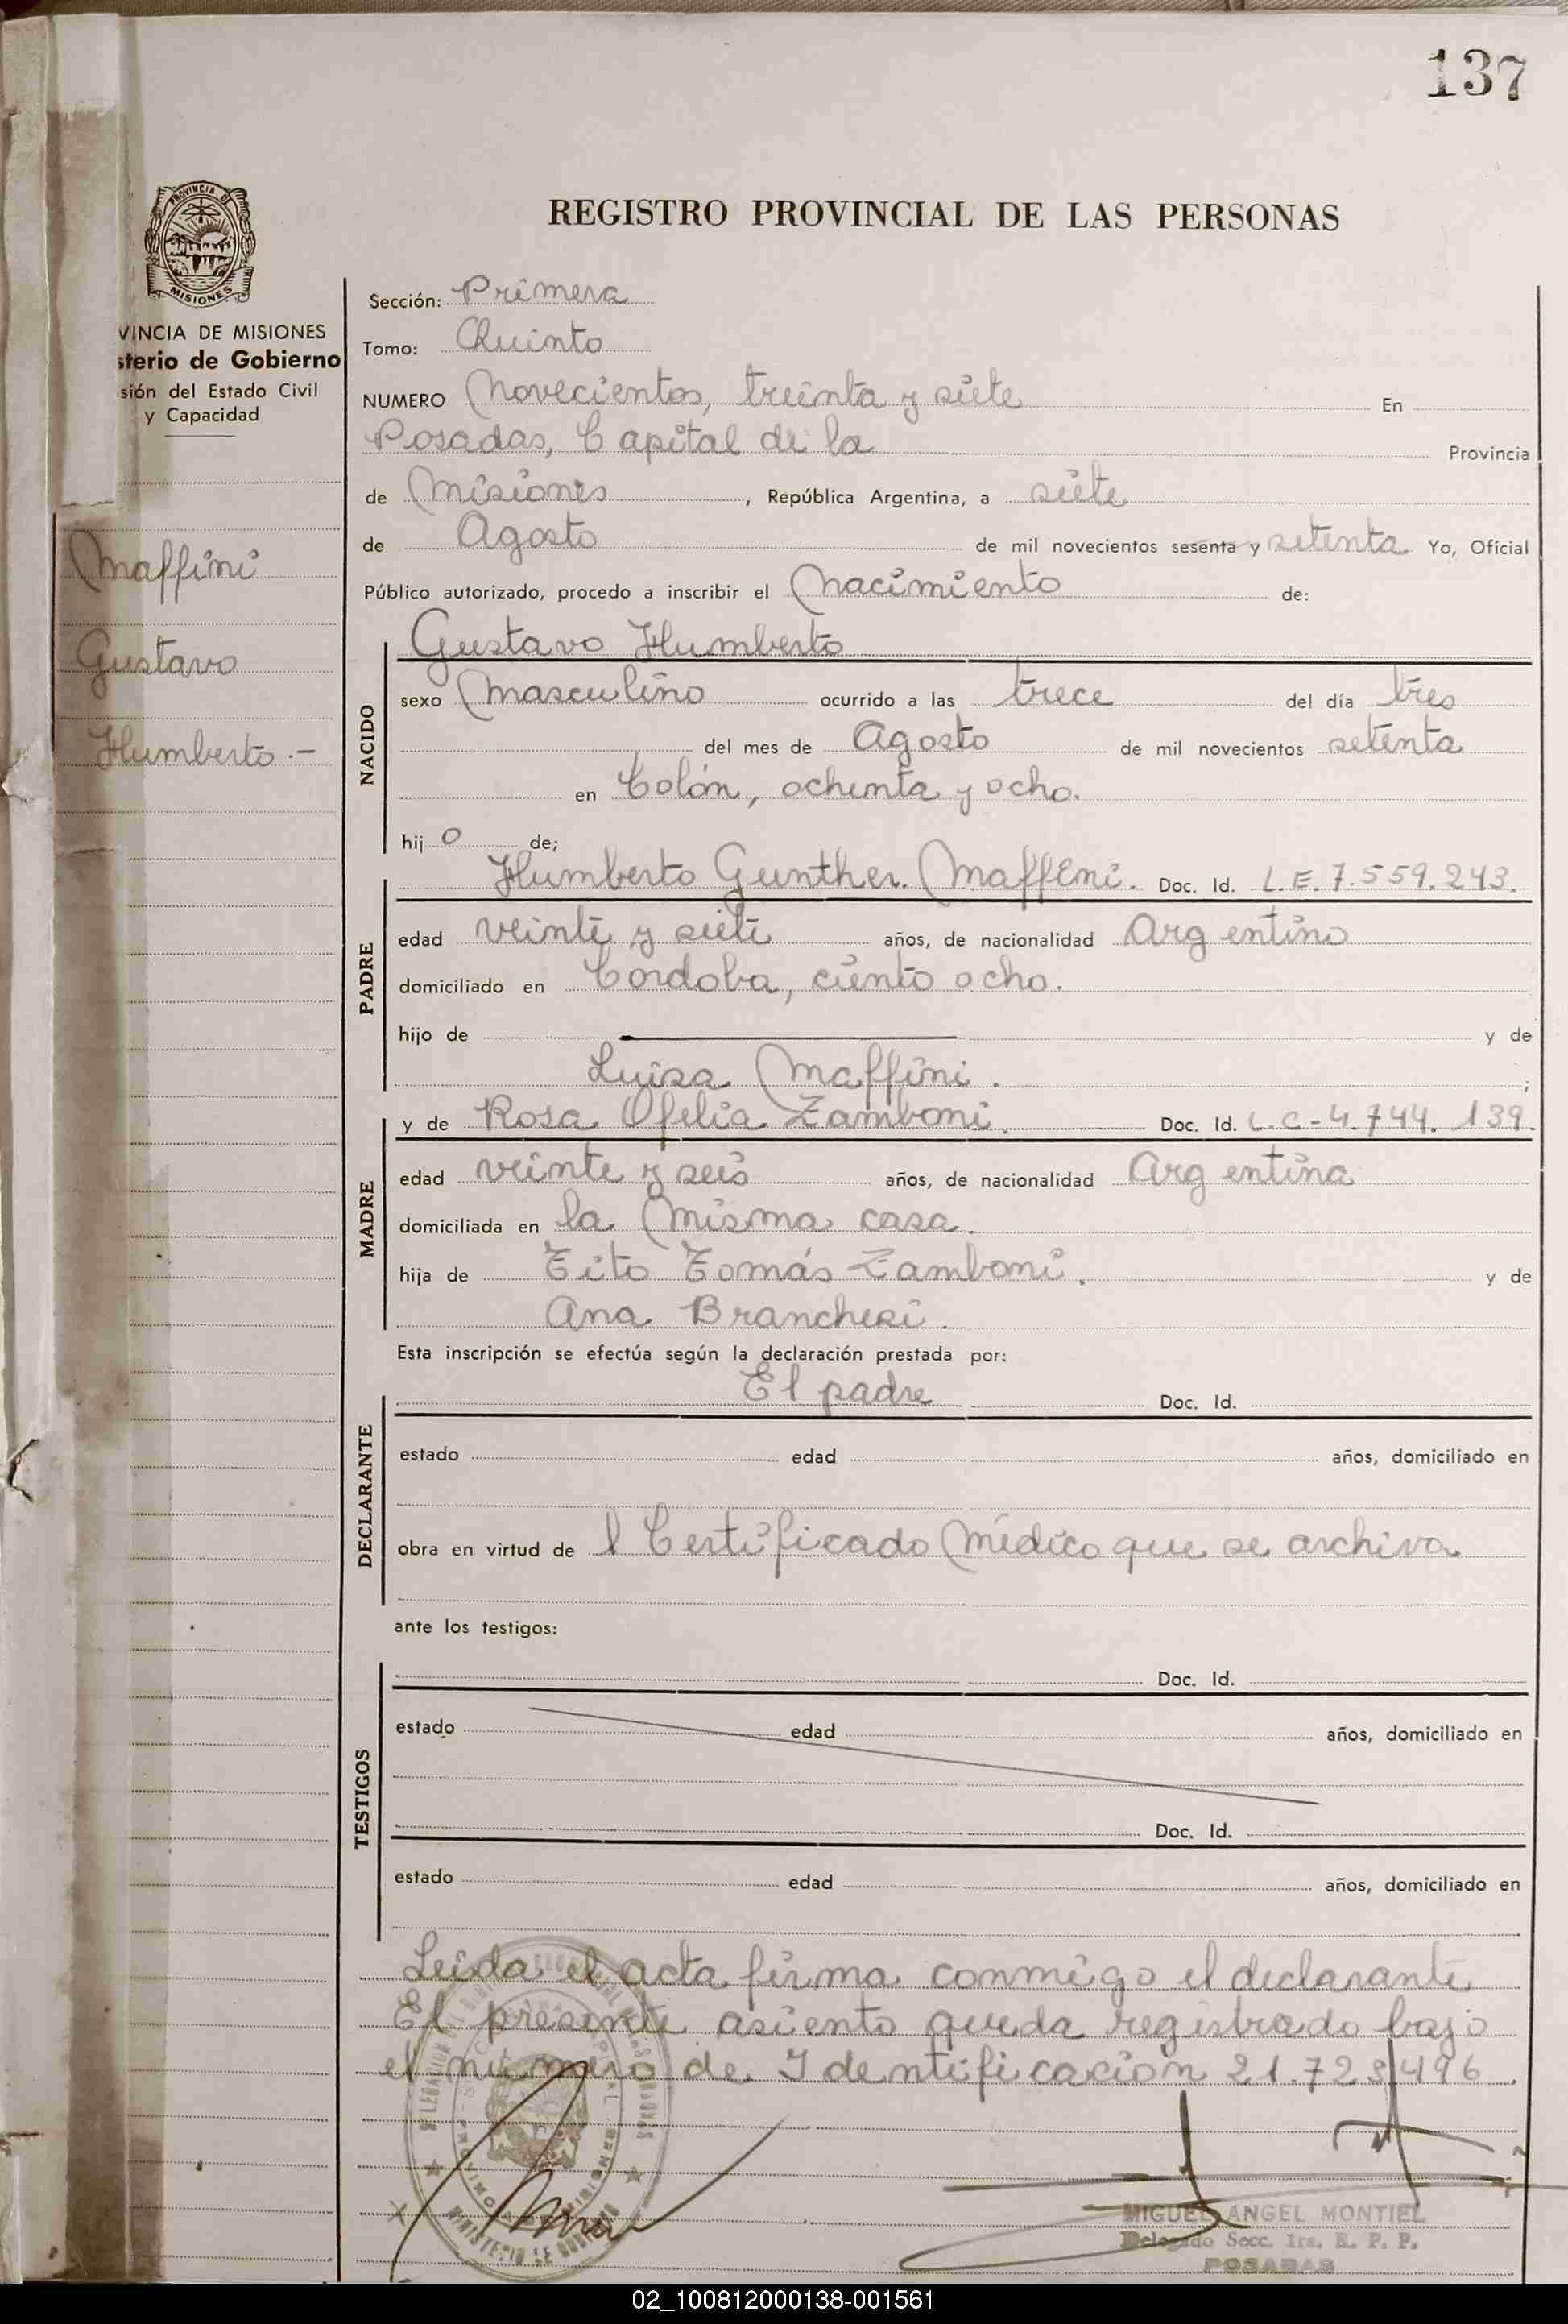 137
PROVINCIA D
MISIONES
VINCIA DE MISIONES
sterio de Gobierno
sión del Estado Civil
y Capacidad
Maffini
Gustavo
Humberto.-
REGISTRO PROVINCIAL DE LAS PERSONAS
Sección: Primera
Tomo: Quinto
NUMERO Novecientos, treinta y siete En
Posadas, Capital de la Provincia
de Misiones, República Argentina, a siete
de Agosto de mil novecientos sesenta y setenta Yo, Oficial
Público autorizado, procedo a inscribir el Nacimiento de:
Gustavo Humberto
NACIDO
sexo Masculino ocurrido a las trece del día tres
del mes de Agosto de mil novecientos setenta
en Colón, ochenta y ocho.
hij o de;
Humberto Gunther. Maffini. Doc. Id. L.E. 7.559.243.
PADRE
edad veinte y siete años, de nacionalidad Argentino
domiciliado en Cordoba, ciento ocho.
hijo de y de
Luisa Maffini. ;
y de Rosa Ofelia Zamboni. Doc. Id. L.C-4.744.139.
MADRE
edad veinte y seis años, de nacionalidad Argentina
domiciliada en la Misma casa.
hija de Tito Tomás Zamboni. y de
Ana Branchesi.
Esta inscripción se efectúa según la declaración prestada por:
El padre Doc. Id.
DECLARANTE
estado edad años, domiciliado en
obra en virtud de l Certificado Médico que se archiva
ante los testigos:
Doc. Id.
TESTIGOS
estado edad años, domiciliado en
Doc. Id.
estado edad años, domiciliado en
Leída el acta firma conmigo el declarante
El presente asiento queda registrado bajo
el número de Identificación 21.723.496.
MIGUEL ANGEL MONTIEL
Delegado Secc. 1ra. R. P. P.
POSADAS
02_100812000138-001561